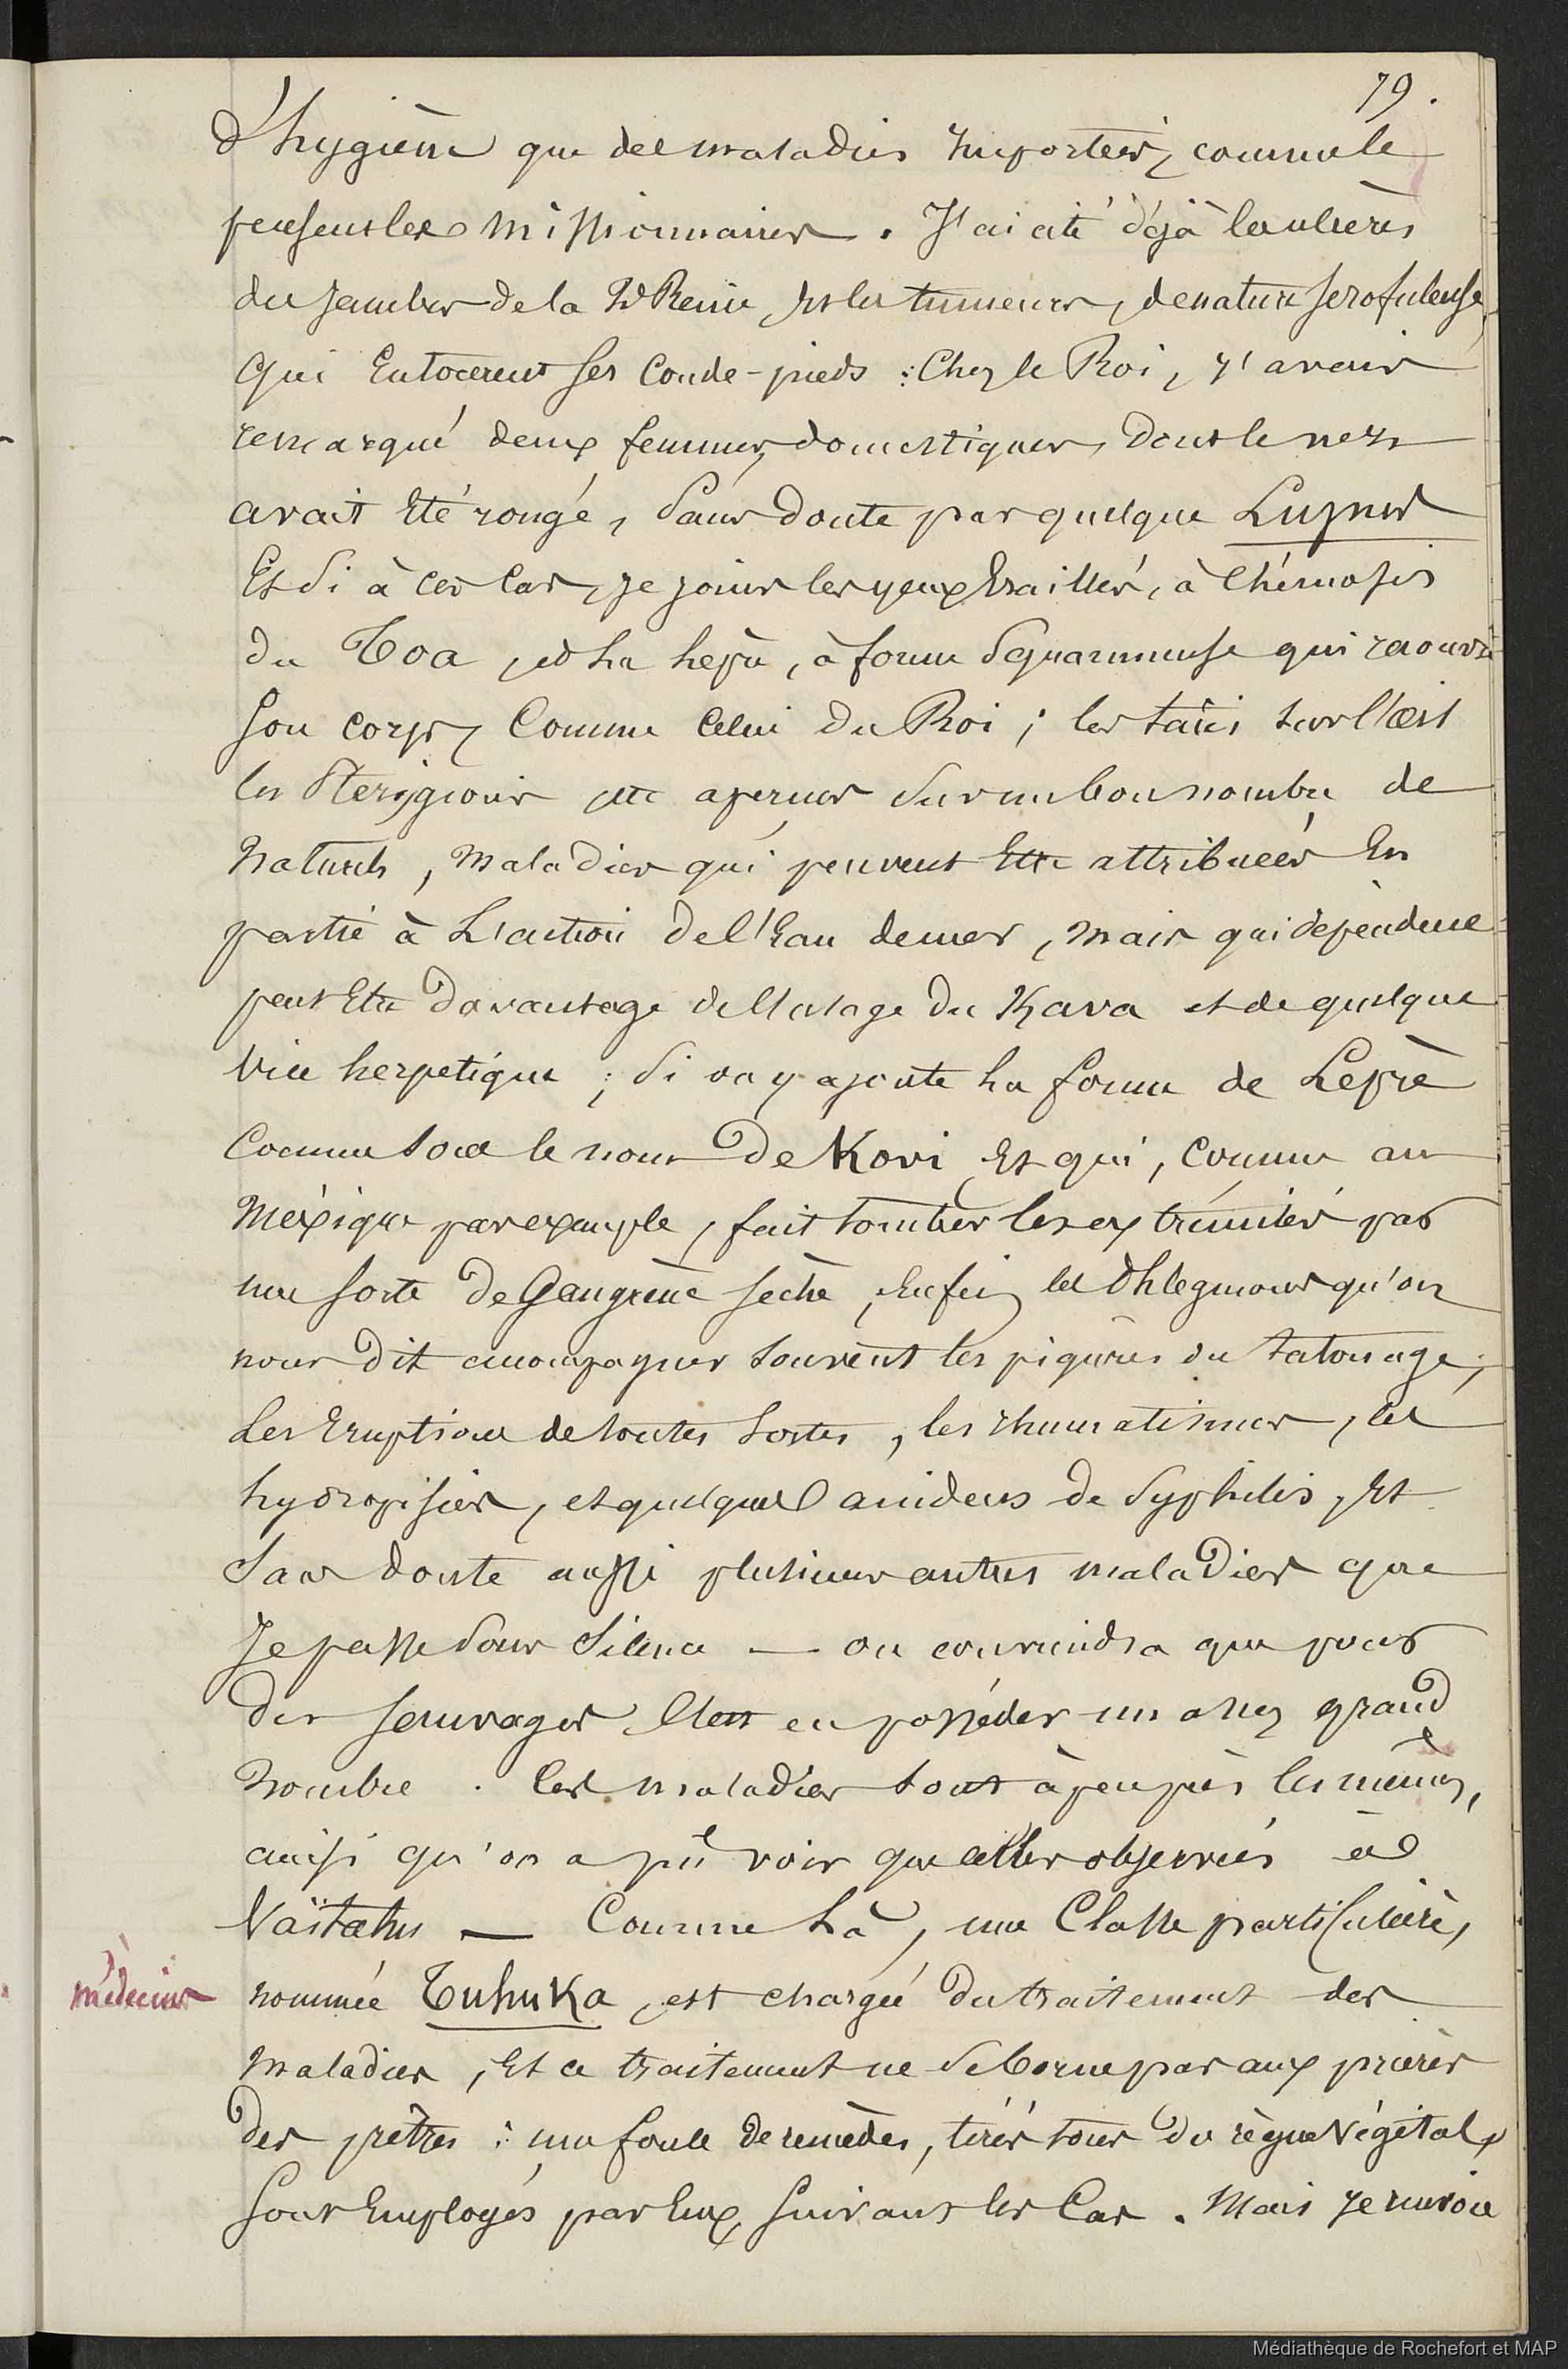 79.
d'hygiène que des maladies importées, comme le
pensent les missionnaires. J'ai cité déjà les ulcères
des jambes de la Rde Reine, et les tumeurs, de nature scrofuleuse,
qui entourent ses coude-pieds : Chez le Roi, j'avais
remarqué deux femmes, domestiques, dont le nez
avait été rongé, sans doute par quelque Lupus
Et si à ces cas, je joins les yeux éraillés, à chémosis
du Toa, et la lèpre, à forme squammeuse qui recouvre
son corps, comme celui du Roi ; les taies sur l'œil
les Pterigions etc aperçus sur un bon nombre de
naturels, maladies qui peuvent être attribuées en
partie à l'action de l'eau de mer, mais qui dépendent
peut être davantage de l'usage du Kava et de quelque
vice herpetique ; si on y ajoute la forme de Lèpre
connue sous le nom de Kovi et qui, comme au
Méxique par exemple, fait tomber les extrémités par
une sorte de Gangrène sèche, enfin les Phlegmons qu'on
nous dit accompagner souvent les piqures du tatouage ;
les éruptions de toutes sortes, les rhumatismes, les
hydropisies, et quelques accidens de syphilis, et
sans doute aussi plusieurs autres maladies que
je passe sous silence — on conviendra que pour
des sauvages c'est en posséder un assez grand
nombre. Ces maladies sont à peu près les mêmes,
ainsi qu'on a pû voir que celles observées à
Vaïtahu — Comme là, une Classe particulière,
médecins
nommée Tuhuka, est chargée du traitement des
maladies, et ce traitement ne se borne pas aux prières
des prêtres : une foule de remèdes, tirés tous du règne végétal,
sont employés par eux, suivant les cas. Mais je renvoie
Médiathèque de Rochefort et MAP